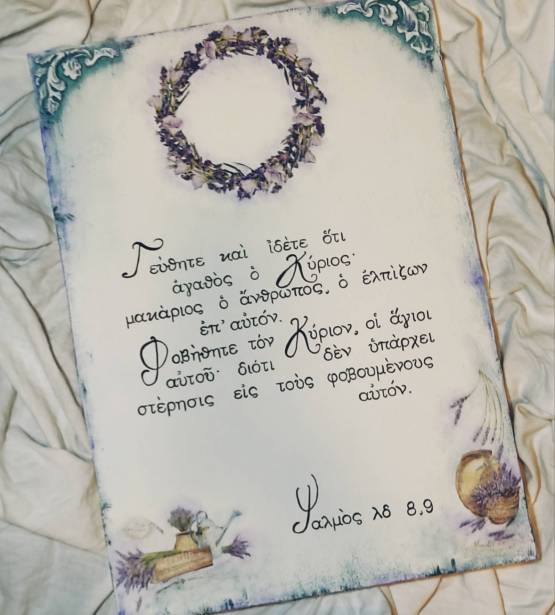 Γεύθητε καὶ ἰδέτε ὅτι
ἀγαθὸς ὁ Κύριος·
μακὰριος ὁ ἄνθρωπος, ὁ ἐλπὶζων
ἐπ' αὐτόν.
Φοβὴθητε τόν Κύριον, οἱ ἅγιοι
αὐτοῦ· διότι δὲν ὑπάρχει
στὲρησις εἰς τοὺς φοβουμὲνους
αὐτόν.
Ψαλμὸς λδ 8,9